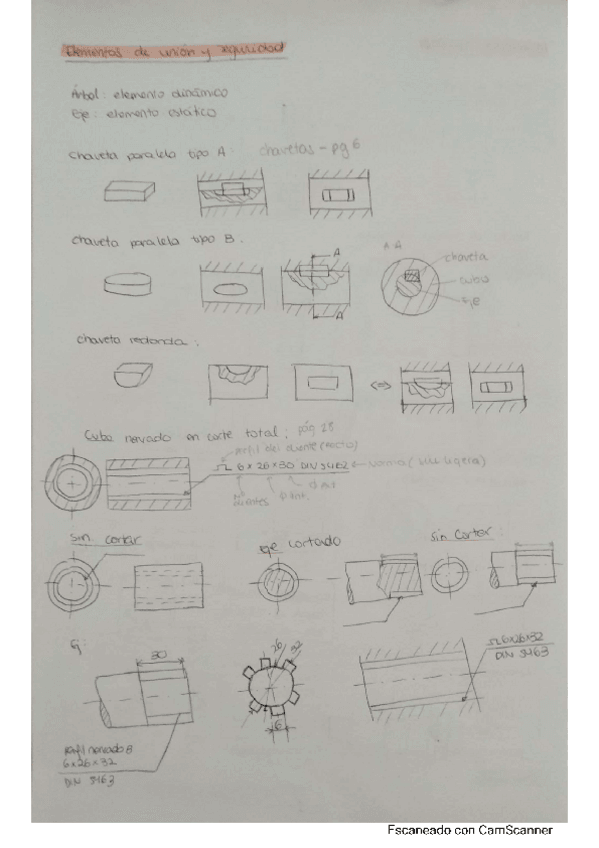 Elementos de unión y seguridad
Árbol: elemento dinámico
Eje: elemento estático
Chaveta paralela tipo A: chavetas - pg 6
Chaveta paralela tipo B.
A
A
A A
chaveta
cubo
eje
Chaveta redonda:
Cubo nervado en corte total: pág 28
perfil del diente (recto)
6 x 26 x 30 DIN 5462 norma (serie ligera)
dientes
sin cortar
eje cortado
sin cortar:
Ej:
30
26
6
6x26x32
DIN 5463
Perfil nervado B
6x26x32
DIN 5463
Escaneado con CamScanner